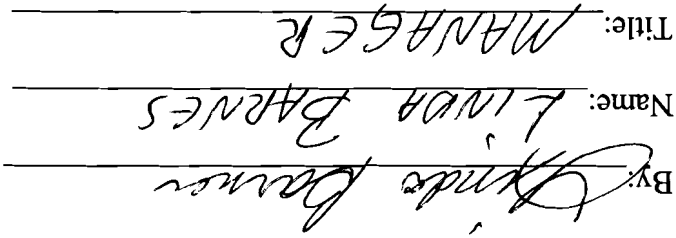 By: Linda Barnes
Name: LINDA BARNES
Title: MANAGER